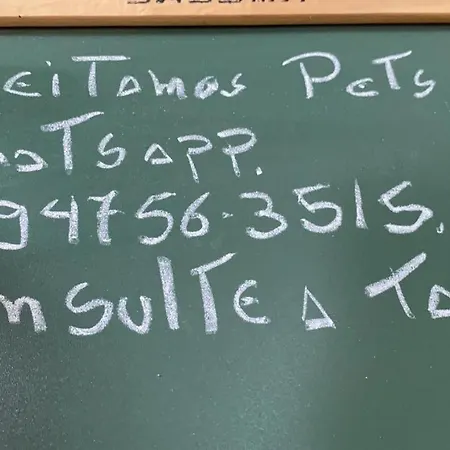 eiTamos PeTs
aTsapp.
94756-3515.
nsulTe a Ta